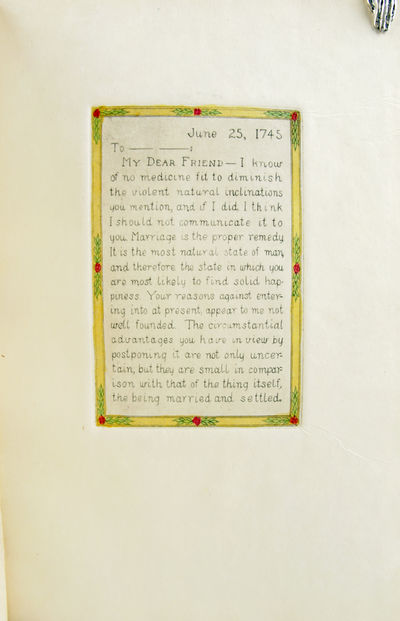 June 25, 1745
To —— ——:
My Dear Friend— I know
of no medicine fit to diminish
the violent natural inclinations
you mention, and if I did, I think
I should not communicate it to
you. Marriage is the proper remedy.
It is the most natural state of man,
and therefore the state in which you
are most likely to find solid hap-
piness. Your reasons against enter-
ing into at present, appear to me not
well founded. The circumstantial
advantages you have in view by
postponing it are not only uncer-
tain, but they are small in compar-
ison with that of the thing itself,
the being married and settled.